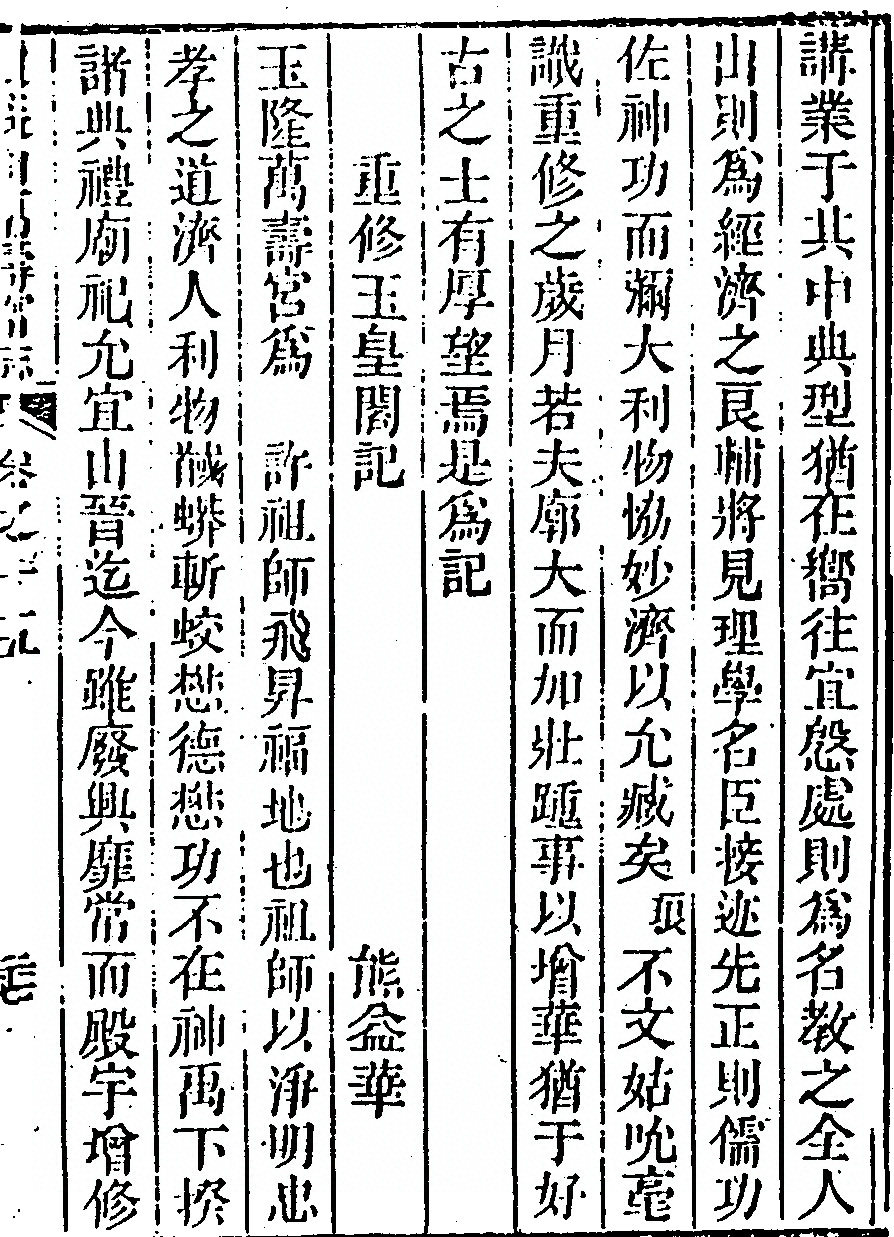 講業于其中典型猶在嚮往宜慇處則爲名教之全人
出則爲經濟之良輔將見理學名臣接迹先正則儒功
佐神功而彌大利物恊妙濟以允臧矣珢不文姑吮毫
識重修之歲月若夫廓大而加壯踵事以增華猶于好
古之士有厚望焉是爲記
重修玉皇閣記 熊益華
玉隆萬壽宮爲 許祖師飛昇福地也祖師以淨明忠
孝之道濟人利物馘蟒斬蛟懋德懋功不在神禹下揆
諸典禮廟祀允宜由晉迄今雖廢興靡常而殿宇增修
萬壽宮志 卷之十五